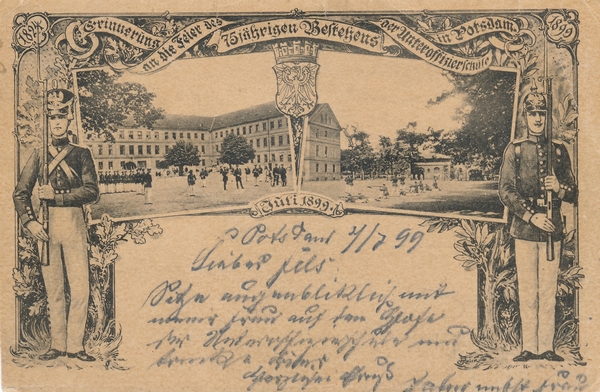 1824
Erinnerung an die Feier des 75jährigen Bestehens der Unteroffizierschule in Potsdam.
1899
Juli 1899.
Potsdam 2/7 99
Lieber
Sitze augenbliklich mit
meiner Frau auf dem Hofe
der Unteroffizierschule und
trinke
Herzlicher Gruß